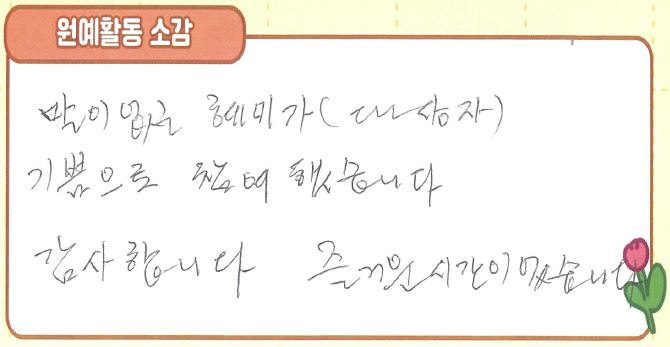 원예활동 소감
말이 없는 혜미가 (대상자)
기쁨으로 참여 했습니다
감사합니다 즐거운 시간이었습니다